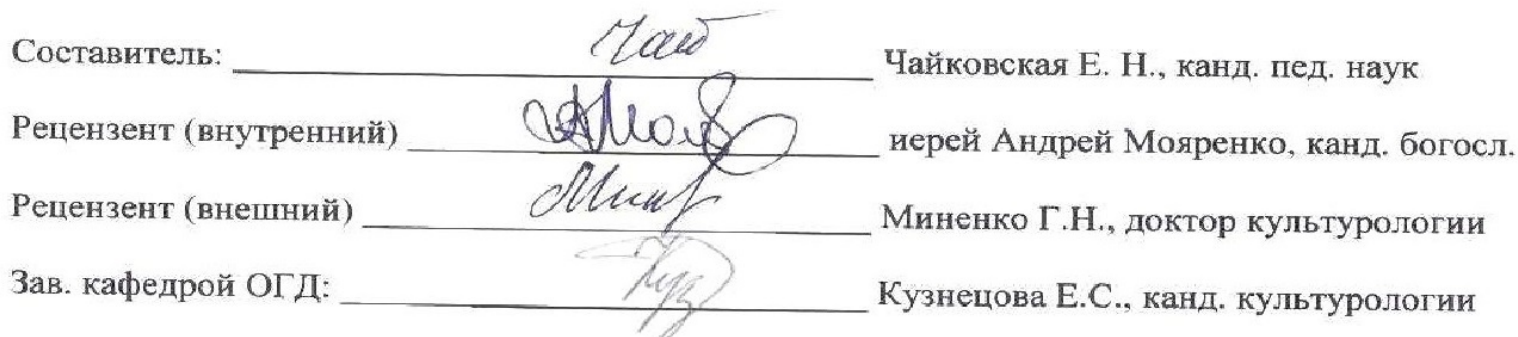 Составитель: Чайковская Е. Н., канд. пед. наук
Рецензент (внутренний) иерей Андрей Мояренко, канд. богосл.
Рецензент (внешний) Миненко Г.Н., доктор культурологии
Зав. кафедрой ОГД: Кузнецова Е.С., канд. культурологии